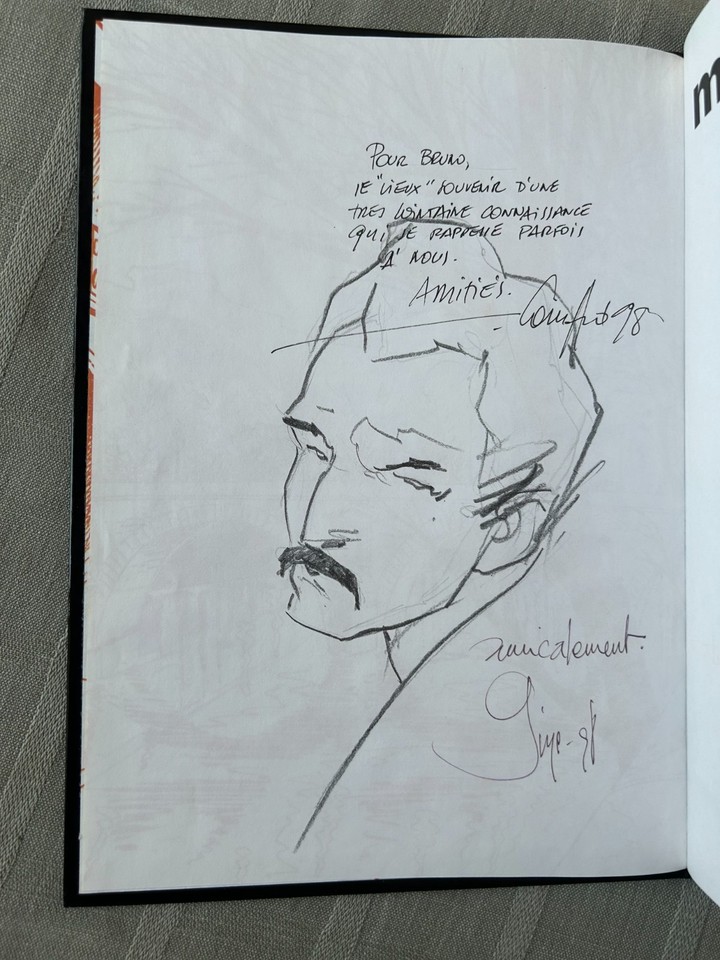 POUR BRUNO,
LE "VIEUX" SOUVENIR D'UNE
TRES LOINTAINE CONNAISSANCE
QUI SE RAPPELLE PARFOIS
A' NOUS.
AMITIÉS.
98
amicalement.
98
m